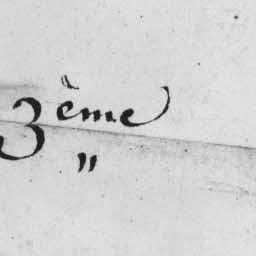 3ème
"